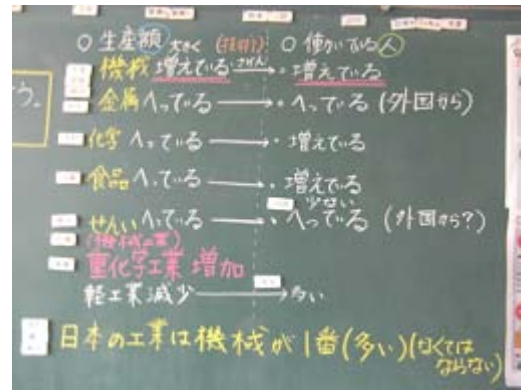 ○ 生産額 大きく ○ 働いている人
機械 増えている → ・増えている
金属 へっている → ・へっている (外国から)
化学 へっている → ・増えている
食品 へっている → ・増えている
少ない
せんい へっている → ・へっている (外国から?)
(機械工業)
重化学工業 増加
軽工業減少 → 多い
日本の工業は機械が1番(多い)(なくてはならない)
う。